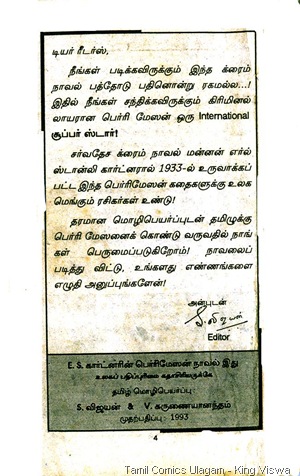 டியர் ரீடர்ஸ்,
நீங்கள் படிக்கவிருக்கும் இந்த க்ரைம்
நாவல் பத்தோடு பதினொன்று ரகமல்ல...!
இதில் நீங்கள் சந்திக்கவிருக்கும் கிரிமினல்
லாயரான பெர்ரி மேஸன் ஒரு International
சூப்பர் ஸ்டார்!
சர்வதேச க்ரைம் நாவல் மன்னன் எர்ல்
ஸ்டான்லி கார்ட்னரால் 1933-ல் உருவாக்கப்
பட்ட இந்த பெர்ரிமேஸன் கதைகளுக்கு உலக
மெங்கும் ரசிகர்கள் உண்டு!
தரமான மொழிபெயர்ப்புடன் தமிழுக்கு
பெர்ரி மேஸனைக் கொண்டு வருவதில் நாங்
கள் பெருமைப்படுகிறோம்! நாவலைப்
படித்து விட்டு, உங்களது எண்ணங்களை
எழுதி அனுப்புங்களேன்!
அன்புடன்
S.விஜயன்
Editor
E. S. கார்ட்னரின் பெர்ரிமேஸன் நாவல் இது
உலகப் பதிப்புரிமை கதாசிரியருக்கே
தமிழ் மொழிபெயர்ப்பு
S. விஜயன் & V. கருணையானந்தம்
முதற்பதிப்பு : 1993
4
Tamil Comics Ulagam - King Viswa